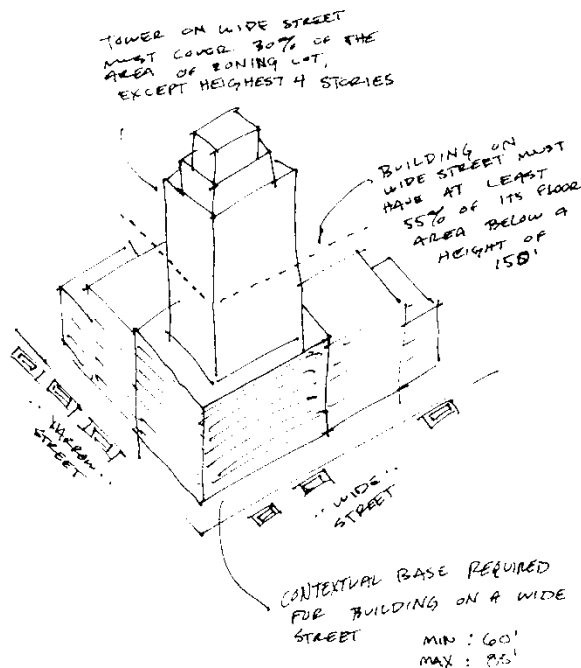 TOWER ON WIDE STREET
MUST COVER 30% OF THE
AREA OF ZONING LOT,
EXCEPT HEIGHEST 4 STORIES
BUILDING ON
WIDE STREET MUST
HAVE AT LEAST
55% OF ITS FLOOR
AREA BELOW A
HEIGHT OF
150'
.. NARROW ..
STREET
.. WIDE ..
STREET
CONTEXTUAL BASE REQUIRED
FOR BUILDING ON A WIDE
STREET
MIN : 60'
MAX :